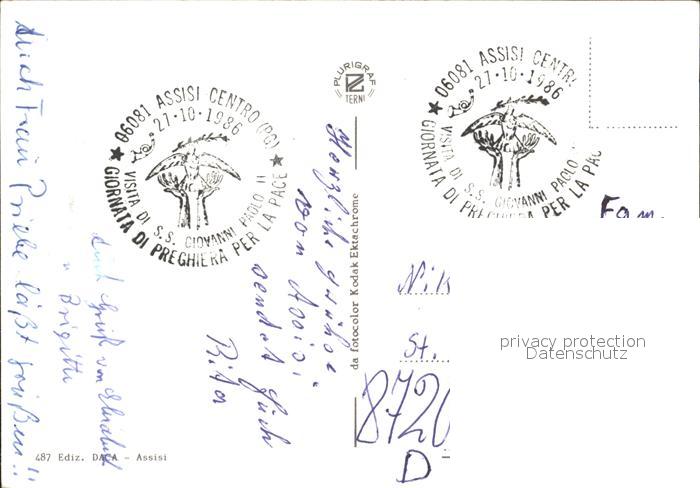 Auch Frau Priebe läßt grüßen!!
Auch Gruß von Elisabeth
u Brigitte
Herzliche Grüße
von Assisi
sendet Euch
Rita
06081 ASSISI CENTRO (PG)
27·10·1986
VISITA DI S.S. GIOVANNI PAOLO II
GIORNATA DI PREGHIERA PER LA PACE
PLURIGRAF
TERNI
da fotocolor Kodak Ektachrome
06081 ASSISI CENTR
27·10·1986
VISITA DI S.S. GIOVANNI PAOLO II
GIORNATA DI PREGHIERA PER LA PAC
Fam.
St.
8720
D
privacy protection
Datenschutz
487 Ediz. DACA - Assisi